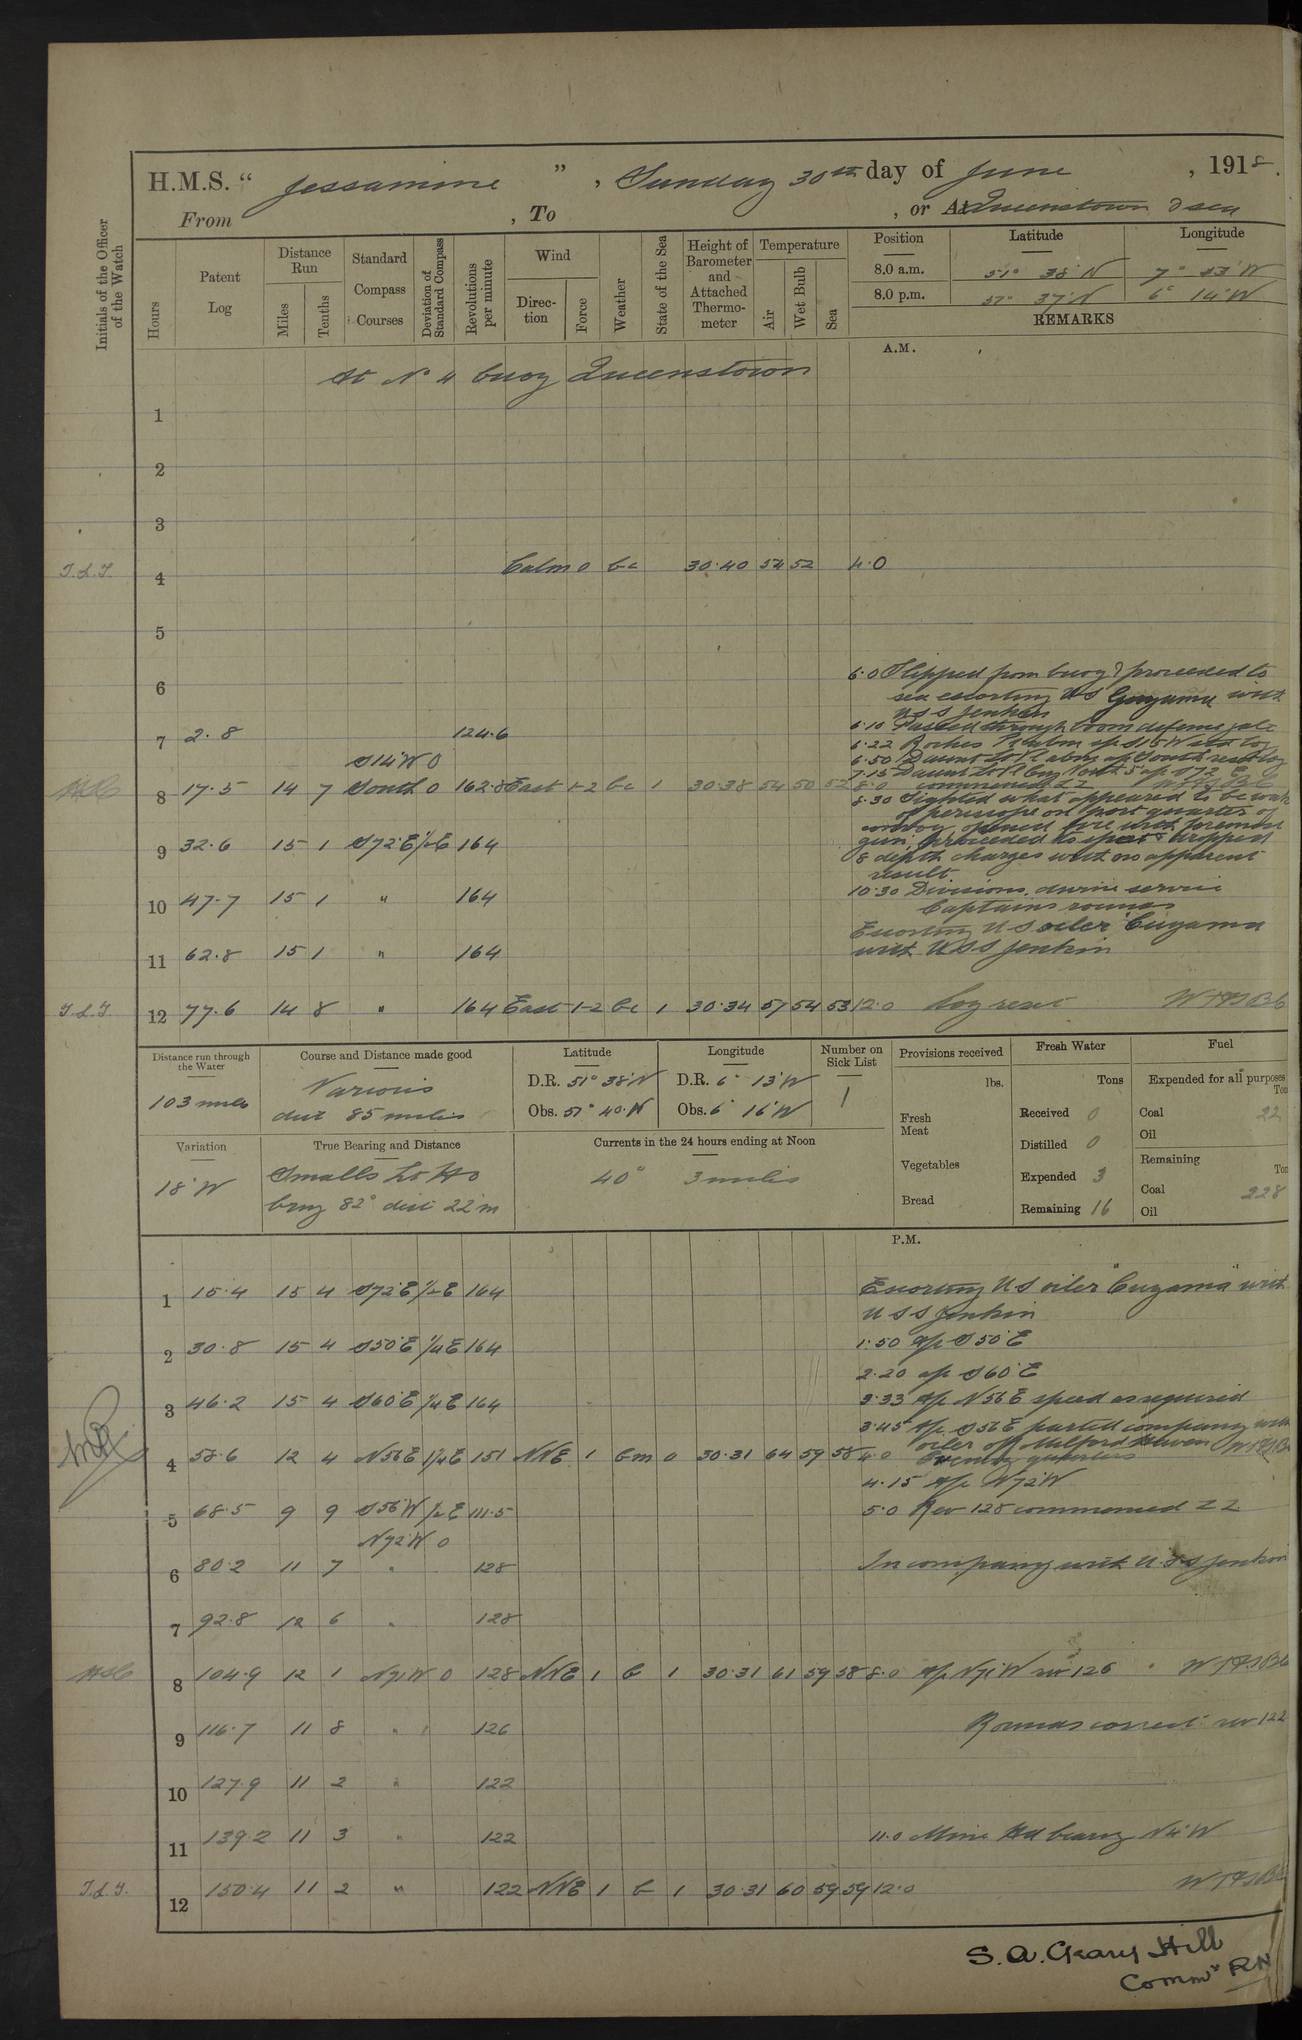 H.M.S. " Jessamine ", Sunday 30th day of June, 1918.
From , To , or At Queenstown & sea
Initials of the Officer of the Watch
Hours
Patent Log
Distance Run
Miles
Tenths
Standard Compass Courses
Deviation of Standard Compass
Revolutions per minute
Wind
Direction
Force
Weather
State of the Sea
Height of Barometer and Attached Thermometer
Temperature
Air
Wet Bulb
Sea
Position Latitude Longitude
8.0 a.m. 51° 38' N 7° 33' W
8.0 p.m. 51° 37' N 6° 14' W
REMARKS
A.M.
At No 4 buoy Queenstown
1
2
3
J.L.J. 4 Calm 0 bc 30.40 54 52 4.0
5
6 6.0 Slipped from buoy & proceeded to
sea escorting US Guyama with
USS Jenkin
7 2.8 124.6 6.10 Passed through boom defence gate
6.22 Roches Pt abm a/c S15W set log
S14W 0 6.50 Daunt Lt V abm a/c South reset log
7.15 Daunt Lt V brg North 5' a/c S72°E
8 17.5 14 7 South 0 162.8 East 1-2 bc 1 30.38 54 50 52 8.0 commenced ZZ
8.30 Sighted what appeared to be wake
of periscope on port quarter of
convoy, opened fire with foremost
9 32.6 15 1 S72°E ½E 164 gun, proceeded to spot & dropped
8 depth charges with no apparent
result.
10 47.7 15 1 " 164 10.30 Divisions, divine service
Captains rounds
Escorting US oiler "Cuyama
11 62.8 15 1 " 164 with USS Jenkin
J.L.J. 12 77.6 14 8 " 164 East 1-2 bc 1 30.34 57 54 53 12.0 Log reset
Distance run through the Water
103 miles
Course and Distance made good
Various
dist 85 miles
Latitude
D.R. 51° 38' N
Obs. 51° 40' N
Longitude
D.R. 6° 13' W
Obs. 6° 16' W
Number on Sick List
1
Variation
18° W
True Bearing and Distance
Smalls Lt Ho
brng 82° dist 22 m
Currents in the 24 hours ending at Noon
40° 3 miles
Provisions received
lbs.
Fresh Meat
Vegetables
Bread
Fresh Water
Tons
Received 0
Distilled 0
Expended 3
Remaining 16
Fuel
Expended for all purposes
Coal 22
Oil
Remaining
Coal 228
Oil
P.M.
1 15.4 15 4 S72°E ½E 164 Escorting US oiler "Cuyama" with
USS Jenkin
2 30.8 15 4 S50°E ¼E 164 1.50 a/c S50°E
2.20 a/c S60°E
3 46.2 15 4 S60°E ¼E 164 3.33 a/c N56E speed as required
3.45 a/c S56E parted company with
oiler off Milford Haven
4 58.6 12 4 N56E 1¼E 151 NNE 1 bm 0 30.31 64 59 58 4.0 Evening quarters
4.15 a/c N72W
5 68.5 9 9 S56°W ½E 111.5 5.0 Rev 128 commenced ZZ
N72°W 0
6 80.2 11 7 " 128 In company with USS Jenkin
7 92.8 12 6 " 128
8 104.9 12 1 N71W 0 128 NNE 1 b 1 30.31 61 59 58 8.0 a/c N71°W rev 126
9 116.7 11 8 " 126 Rounds correct rev 122
10 127.9 11 2 " 122
11 139.2 11 3 " 122 11.0 Mine Hd bearing N4°W
J.L.J. 12 150.4 11 2 " 122 NNE 1 b 1 30.31 60 59 59 12.0
S. A. Geary Hill
Commr RN